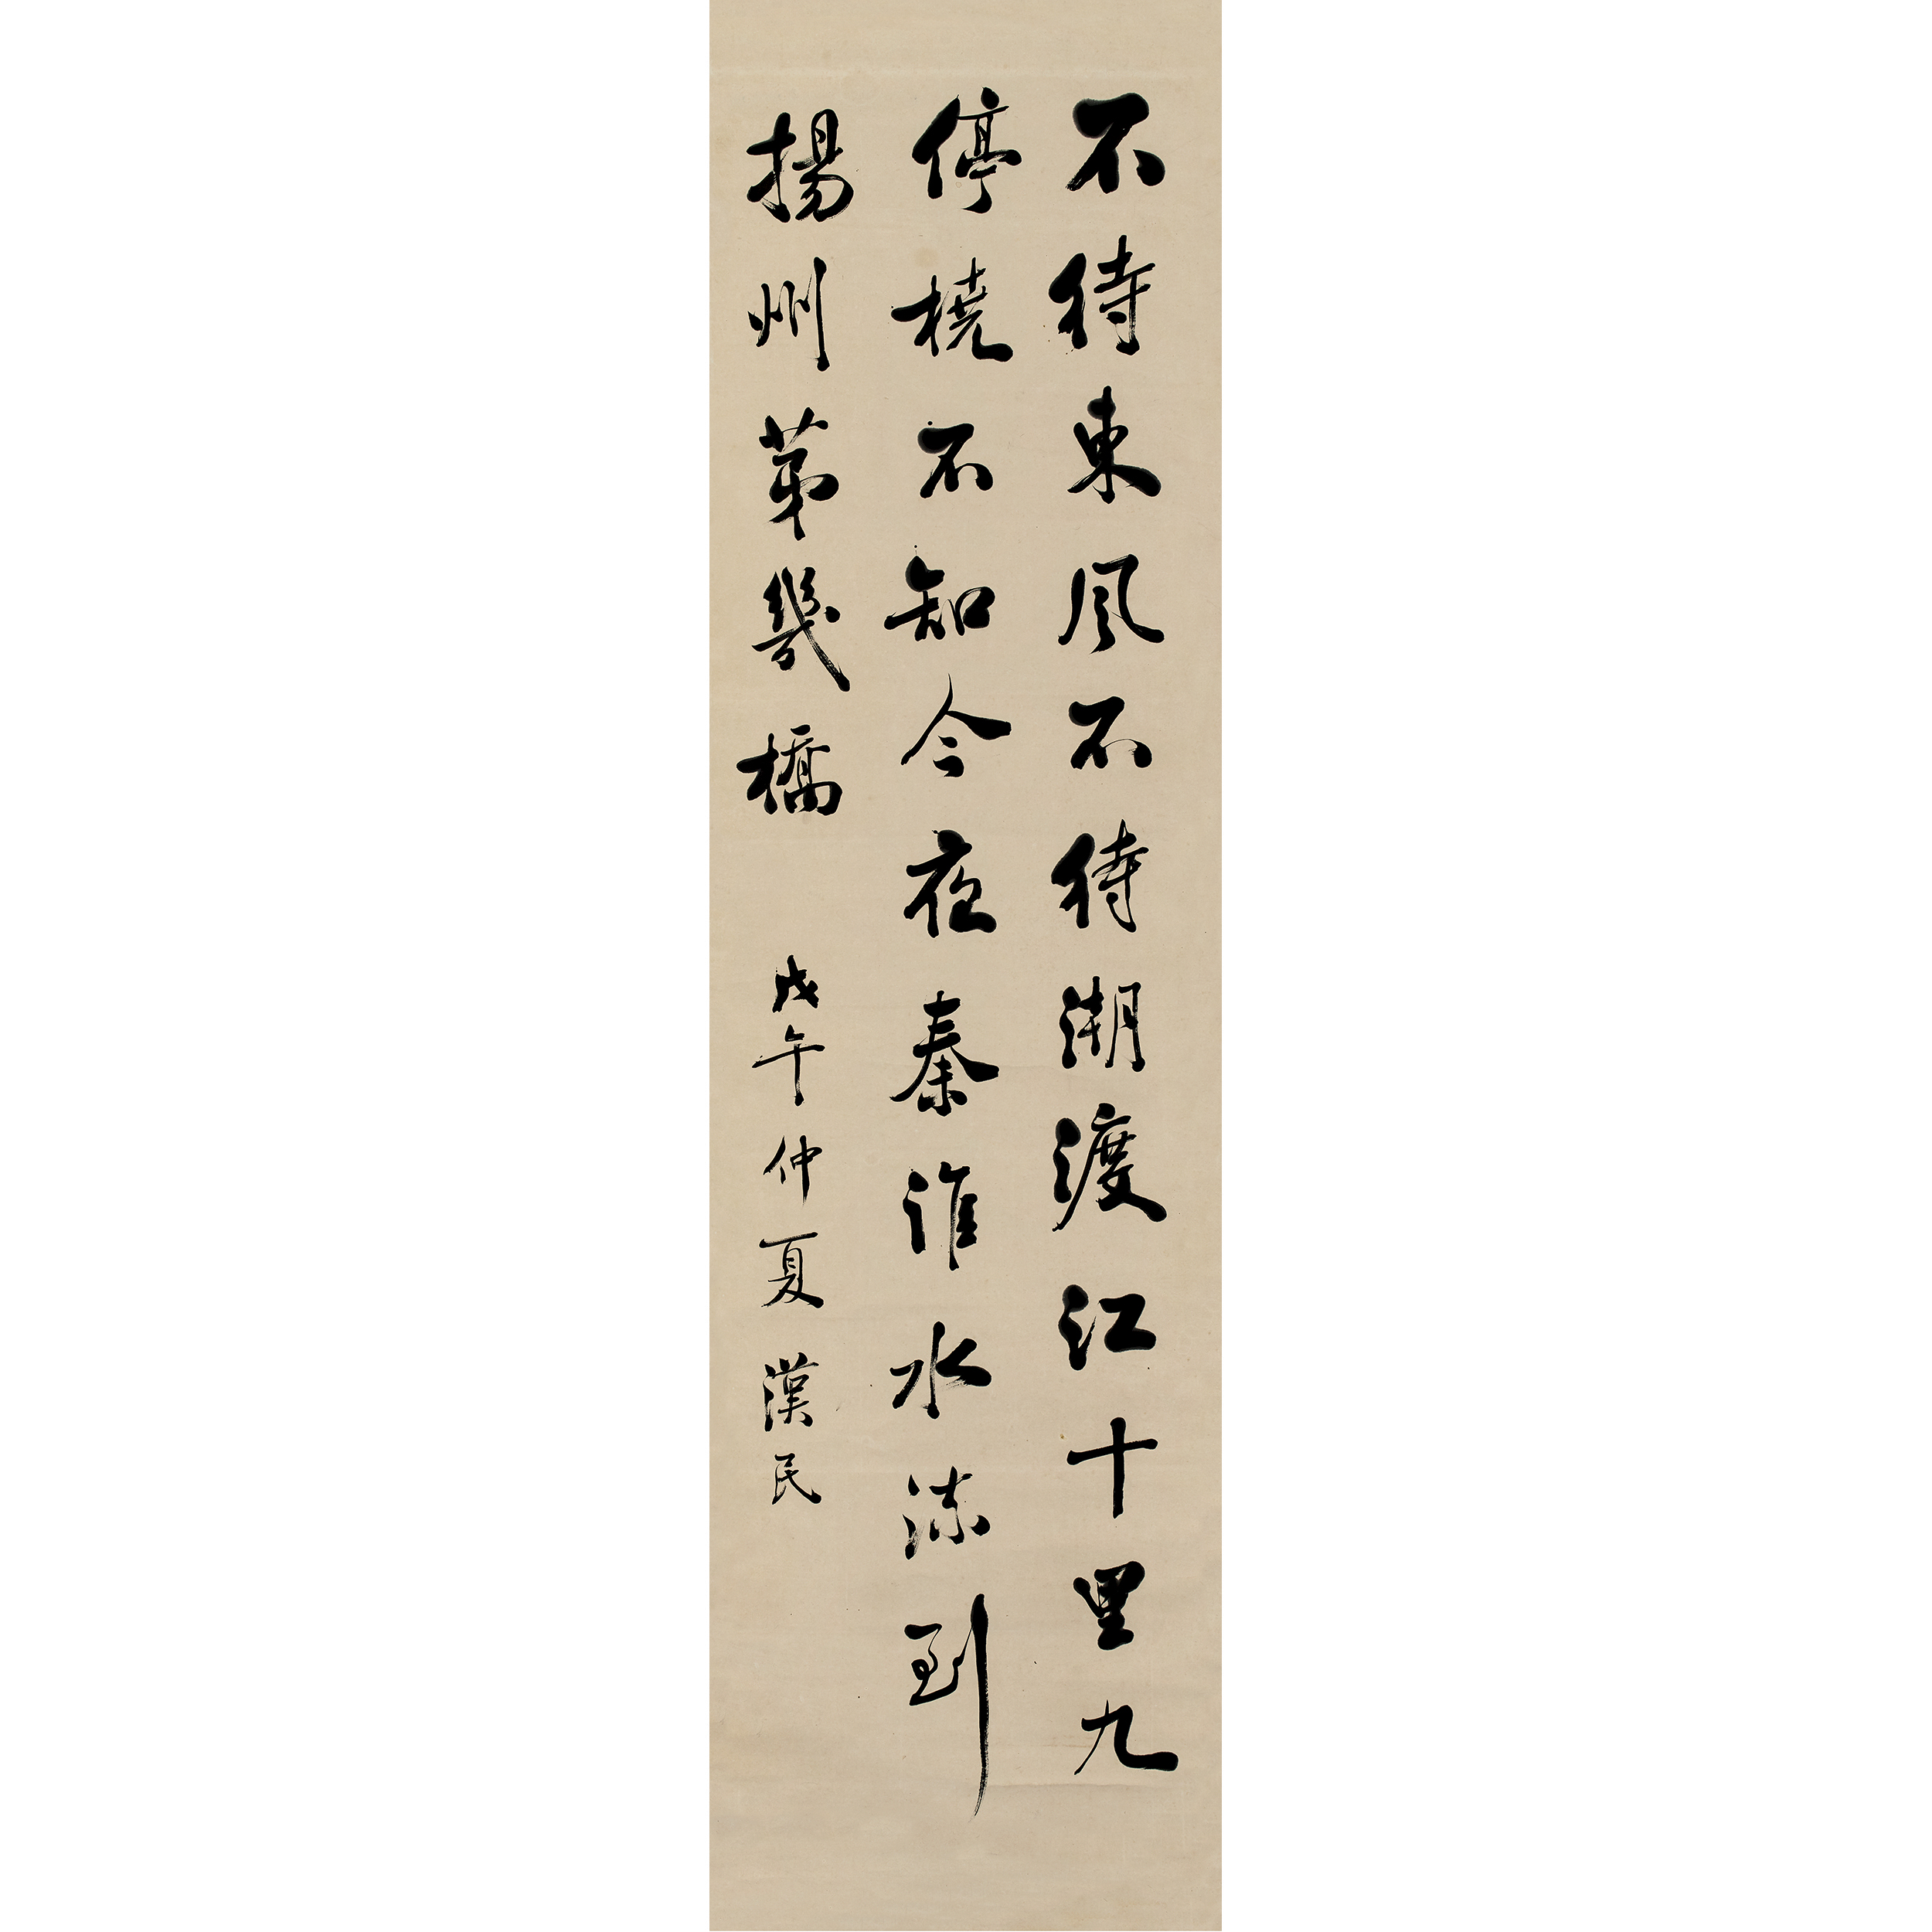 不待東風不待潮渡江十里九
停橈不知今夜秦淮水流到
揚州第幾橋
戊午仲夏漢民